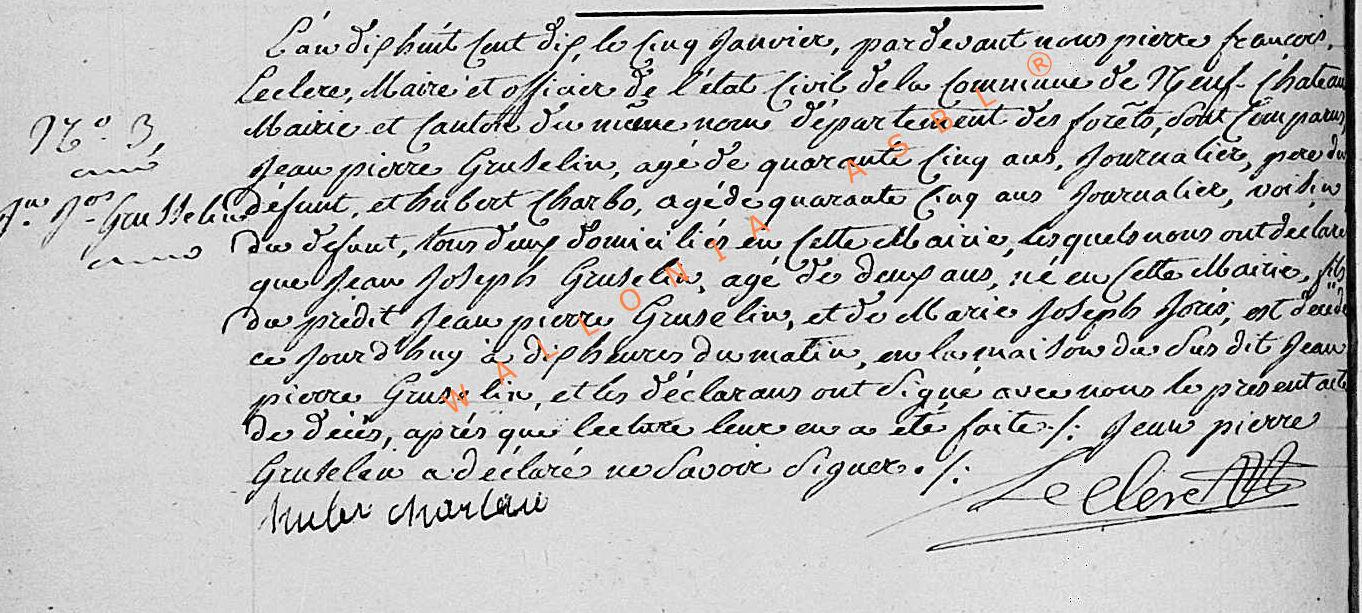 L'an diphuit cent dip, le cinq Janvier, pardevant nous pierre françois,
Leclere, Maire et officier de l'état Civil de la Commune de Neuf-Chateau
Mairie et Canton du même nom département des forêts, Sont Comparus,
N.o 3,
Jean pierre Gruselin, agé de quarante Cinq ans, Journalier, pere du
Jn. Jos. Grusselin
défunt, et hubert Charbo, agé de quarante Cinq ans Journalier, voisin
du défunt, tous deux domiciliés en Cette Mairie, lesquels nous ont déclaré
que Jean Joseph Gruselin, agé de deux ans, né en Cette Mairie, fils
du prédit Jean pierre Gruselin, et de Marie Joseph Joris, est décédé
ce Jourd'huy à dip heures du matin, en la maison du Susdit Jean
pierre Gruselin, et les déclarans ont Signé avec nous le présent acte
de décès, après que lecture leur en a été faite ./. Jean pierre
Gruselin a déclaré ne Savoir Signer ./.
huber charbau
Leclere
WALLONIA ASBL ®